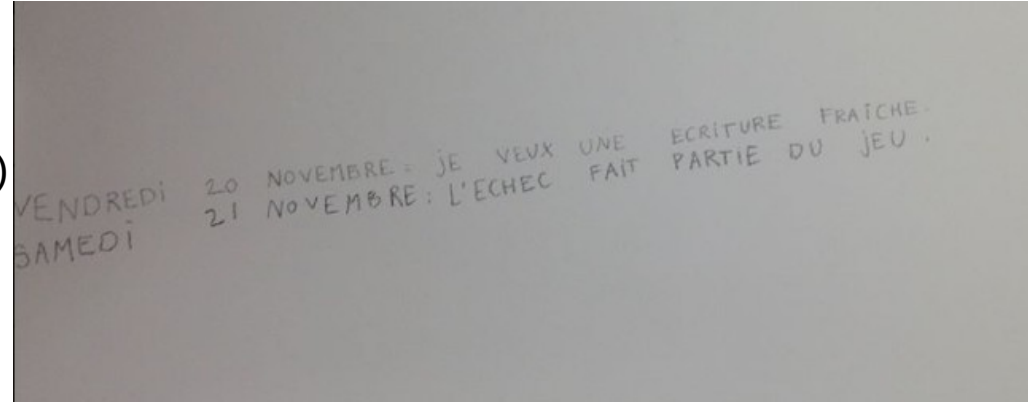 VENDREDI 20 NOVEMBRE : JE VEUX UNE ECRITURE FRAICHE.
SAMEDI 21 NOVEMBRE : L'ECHEC FAIT PARTIE DU JEU.